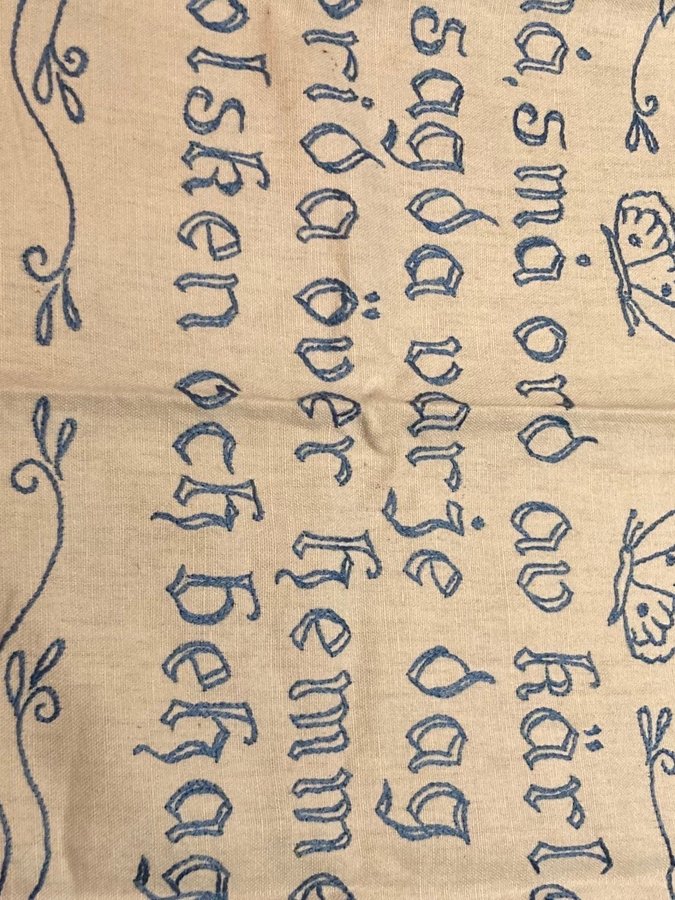 må, små ord av kärle
sagda varje dag
prida över hemme
olsken och behag